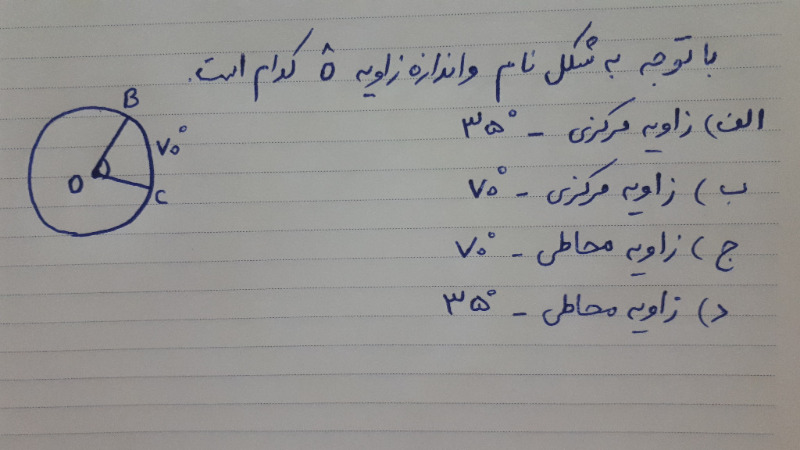 با توجه به شکل نام و اندازه زاویه Ô کدام است.
الف) زاویه مرکزی - ۳۵°
ب) زاویه مرکزی - ۷۰°
ج) زاویه محاطی - ۷۰°
د) زاویه محاطی - ۳۵°
B
۷۰°
O
C